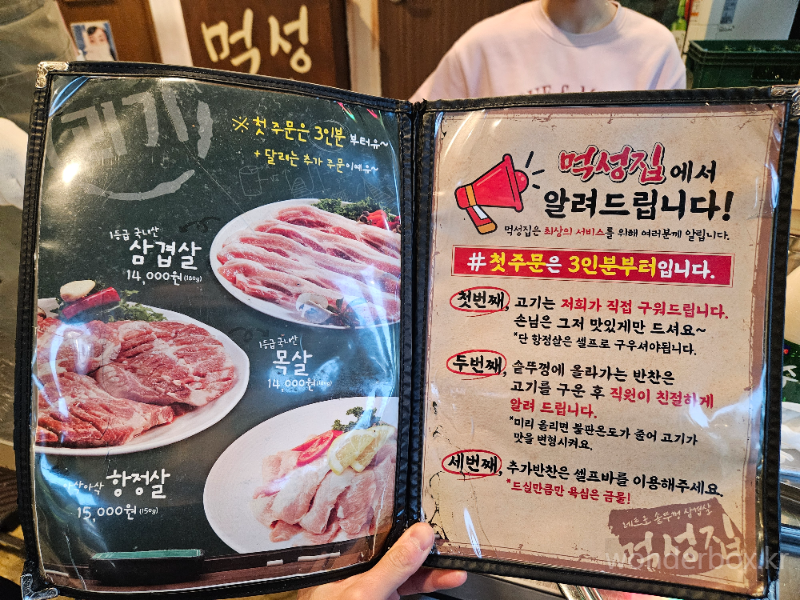 먹성
고기
※첫 주문은 3인분 부터유~
+ 달리는 추가 주문이예유~
1등급 국내산
삼겹살
14,000원(180g)
1등급 국내산
목살
14,000원
항정살
15,000원(150g)
먹성집에서
알려드립니다!
먹성집은 최상의 서비스를 위해 여러분께 알립니다.
#첫주문은 3인분부터입니다.
첫번째, 고기는 저희가 직접 구워드립니다.
손님은 그저 맛있게만 드셔요~
*단 항정살은 셀프로 구우셔야됩니다.
두번째, 솥뚜껑에 올라가는 반찬은
고기를 구운 후 직원이 친절하게
알려 드립니다.
*미리 올리면 불판온도가 줄어 고기가
맛을 변형시켜요.
세번째, 추가반찬은 셀프바를 이용해주세요.
*드실만큼만 욕심은 금물!
레트로 솥뚜껑 삼겹살
먹성집
wonderbox.kr